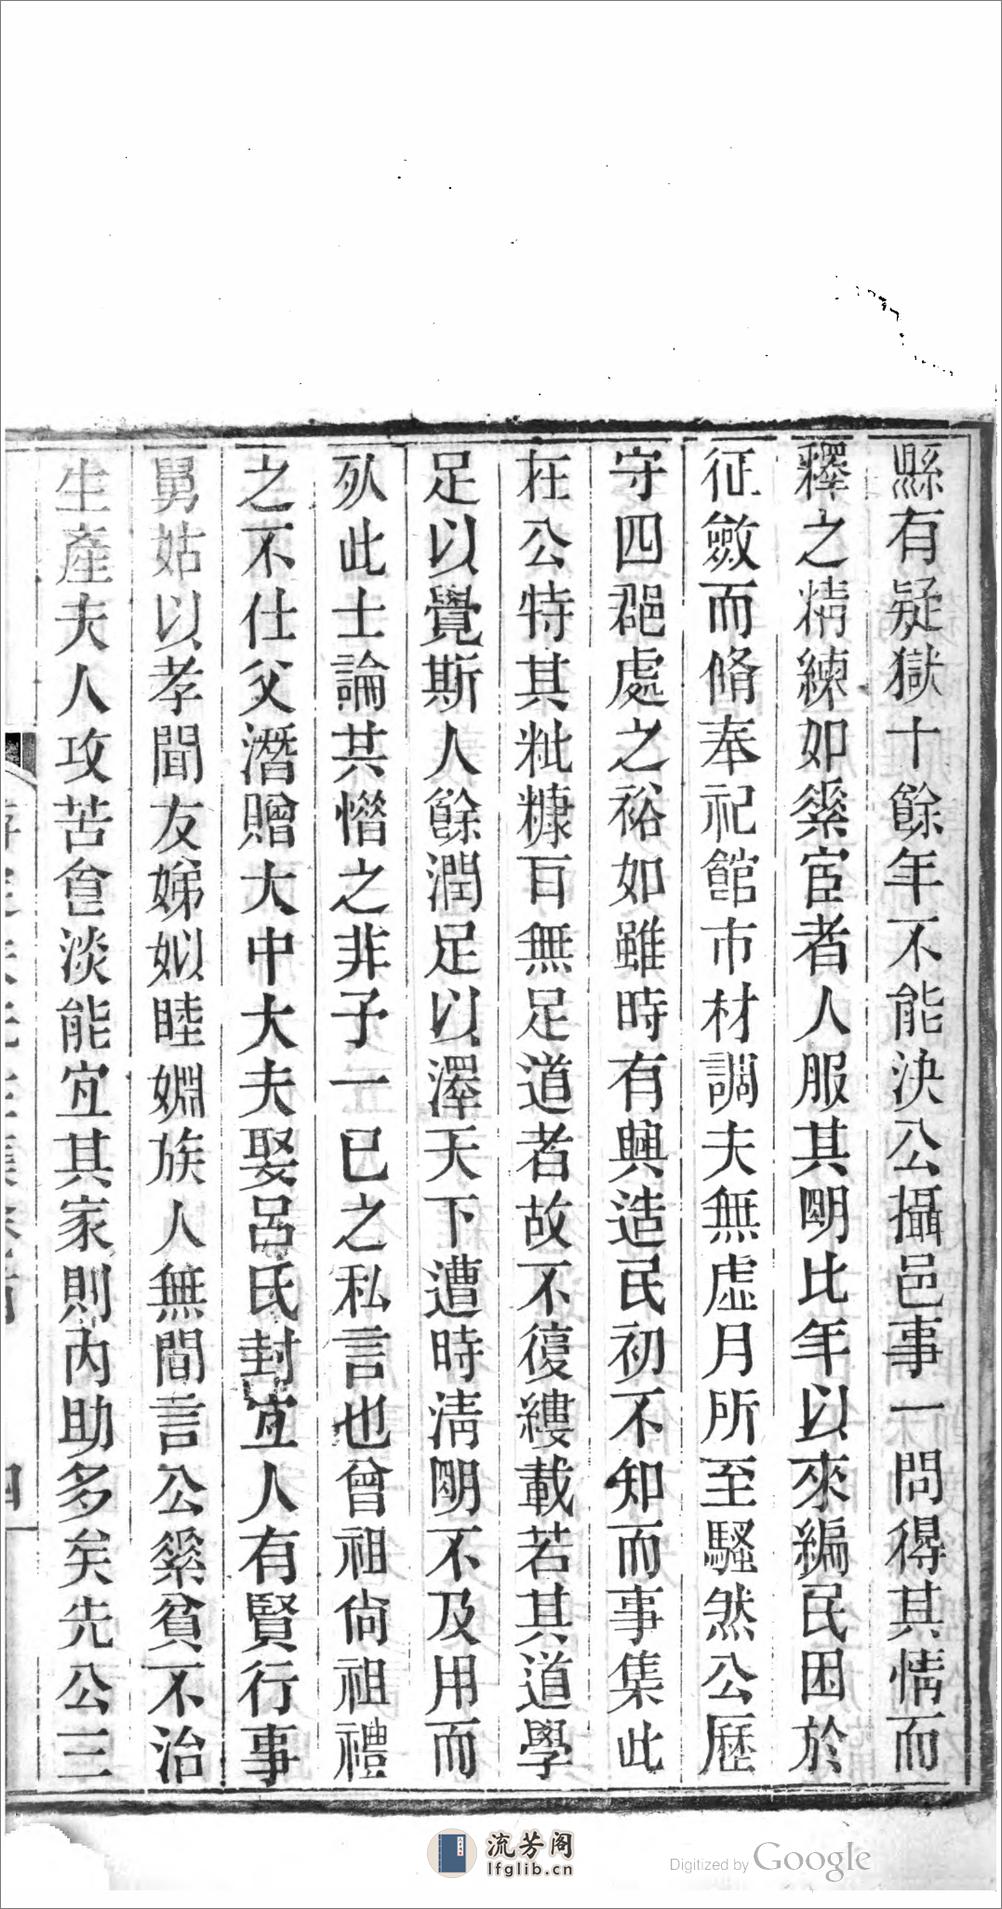 縣有疑獄十餘年不能決公攝邑事一問得其情而
釋之精練如素宦者人服其明比年以來編民困於
征斂而脩奉祀館市材調夫無虛月所至騷然公歷
守四郡處之裕如雖時有興造民初不知而事集此
在公特其粃糠百無足道者故不復縷載若其道學
足以覺斯人餘潤足以澤天下遭時淸明不及用而
死此士論共惜之非予一已之私言也曾祖尙祖禮
之不仕父潛贈大中大夫娶呂氏封宜人有賢行事
舅姑以孝聞友娣姒睦婣族人無間言公素貧不治
生產夫人攻苦食淡能宜其家則內助多矣先公三
四
流芳阁
lfglib.cn
Digitized by Google